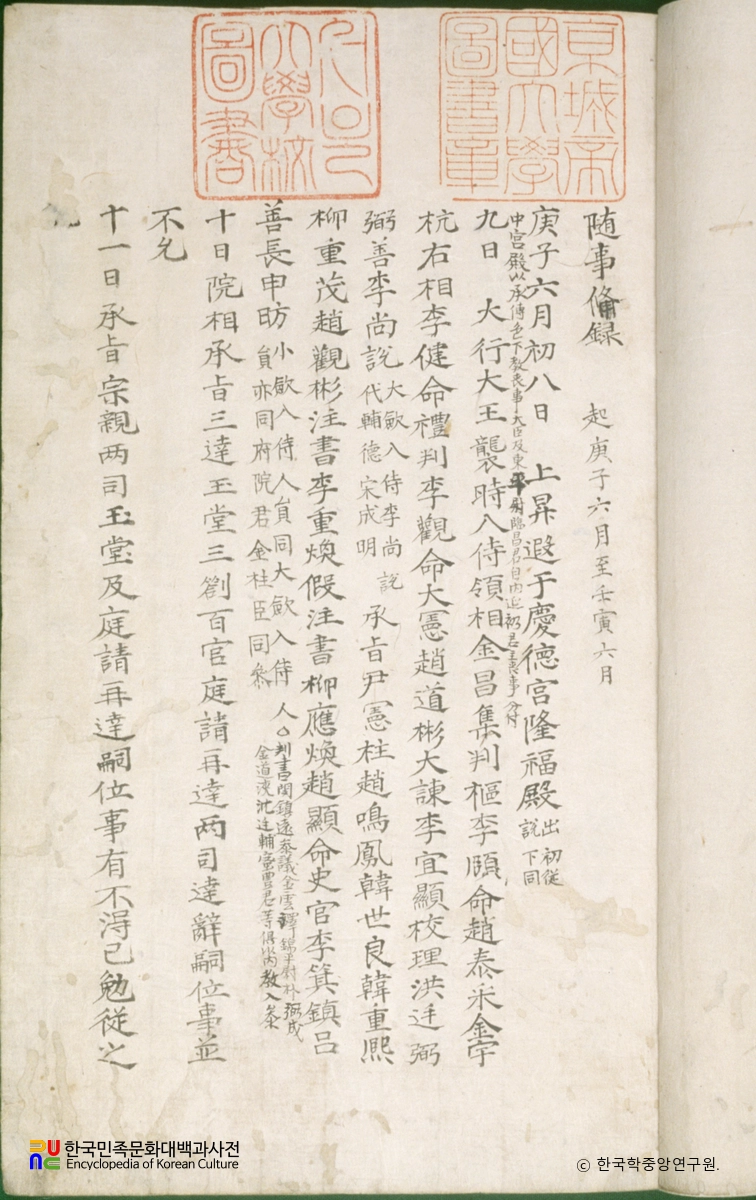 京城帝
國大學
圖書章
서울
大學校
圖書
随事备録 起庚子六月至壬寅六月
庚子六月初八日 上昇遐于慶德宮隆福殿 初從出說下同
中宮殿以承傳色下教喪事大臣及東平尉臨昌君自內
九日 大行大王襲時入侍領相金昌集判樞李頤命趙泰采金宇
杭右相李健命禮判李觀命大憲趙道彬大諫李宜顯校理洪廷弼
弼善李尚說 大歛入侍李尚說代輔德宋成明 承旨尹憲柱趙鳴鳳韓世良韓重熙
柳重茂趙觀彬注書李重煥假注書柳應煥趙顯命史官李箕鎮呂
善長申昉 小歛入侍人員同大歛入侍人員亦同府院君金柱臣同叅 人○判書閔鎮遠叅議金雲澤錦平尉朴弼成 密豊君等俱以內教入叅
十日院相承旨三達玉堂三劄百官庭請再達两司達辭嗣位事並
不允
十一日承旨宗親两司玉堂及庭請再達嗣位事有不得已勉從之
한국민족문화대백과사전
Encyclopedia of Korean Culture
© 한국학중앙연구원.